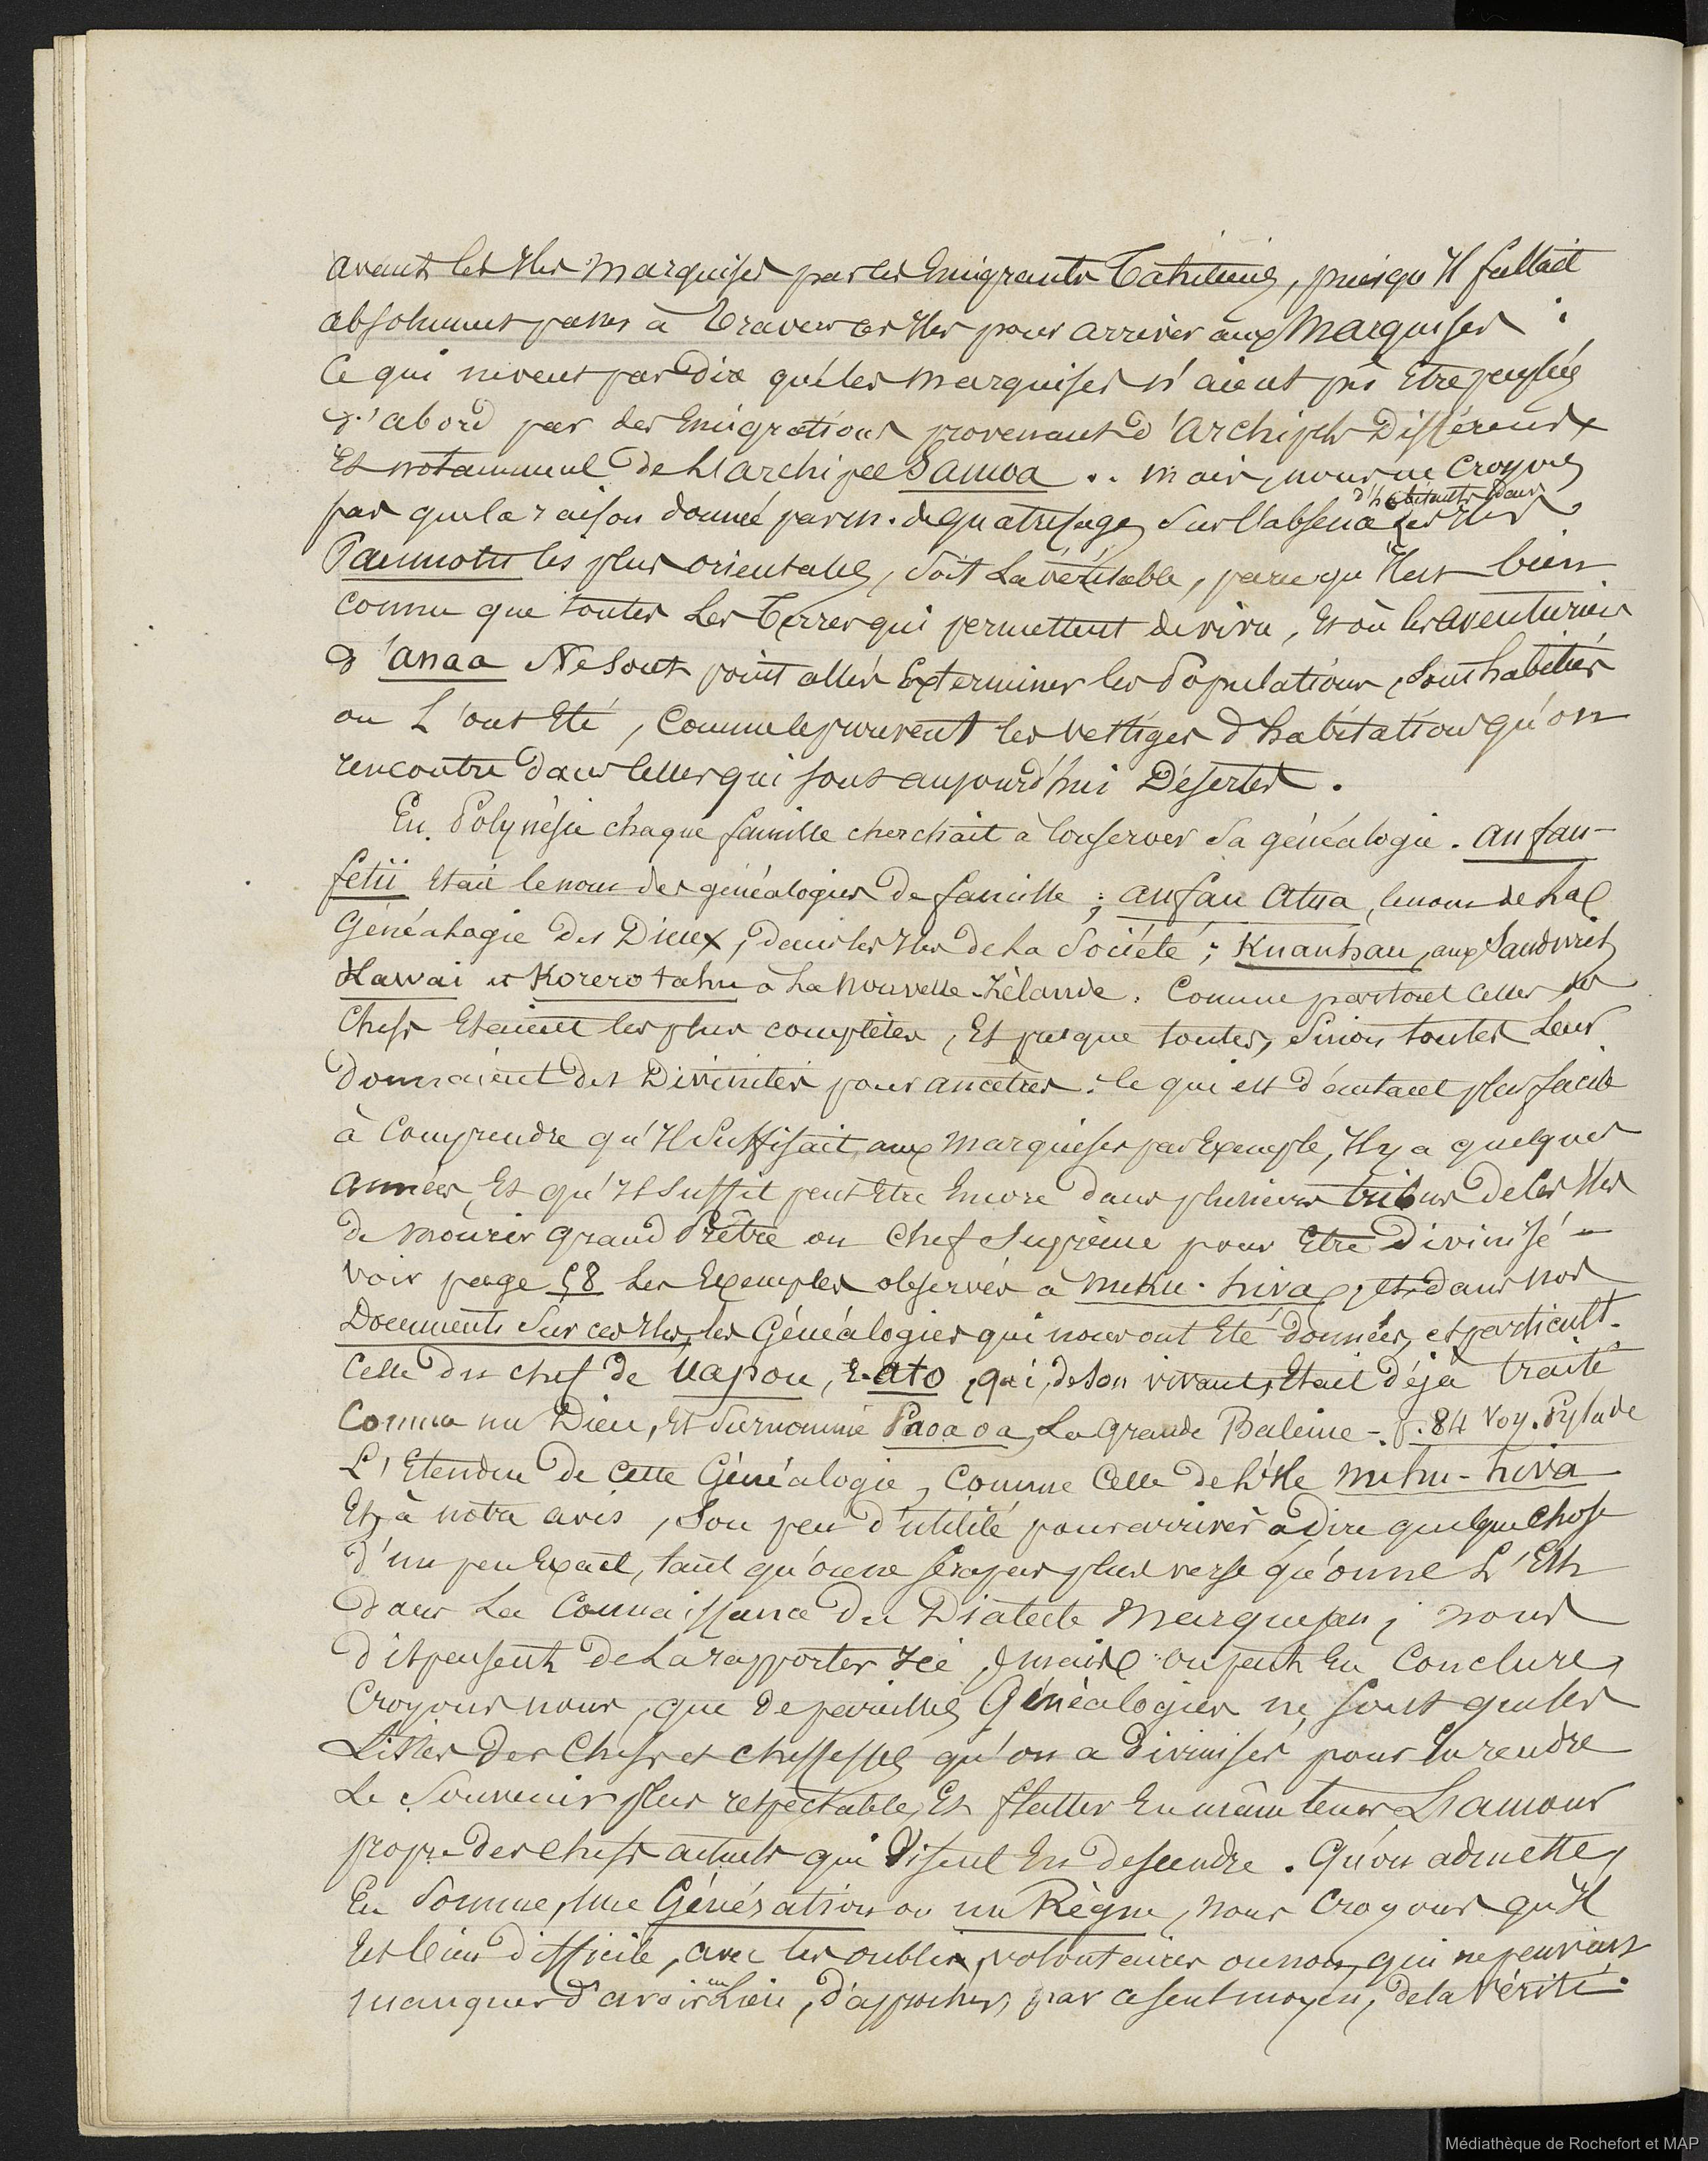 avant les Iles Marquises par les Emigrants Tahitiens, puisqu'Il fallait
absolument passer à Travers ces Iles pour arriver aux Marquises :
Ce qui ne veut pas Dire que les Marquises n'aient pu Etre peuplées
d'abord par des Emigrations provenant d'Archipels Différents
Et notamment De L'archipel Samoa .. mais, nous ne Croyons
pas que la raison donnée par M. de quatrefages Sur l'absence d'habitants dans les Iles
Paumotu les plus orientales, Soit La véritable, parce qu'Il est bien
Connu que toutes Les Terres qui permettent de vivre, Et où les aventuriers
d'anaa Ne Sont point allés Exterminer les Populations, Sont habitées
ou L'ont Eté, Comme le prouvent les vestiges d'habitations qu'on
rencontre dans Celles qui sont aujourd'hui Désertes.
En Polynésie chaque famille cherchait à Conserver Sa généalogie. aufau-
fetii Etait le nom des généalogies De famille ; aufau atua, le nom de La
Généalogie Des Dieux, dans les Iles de La Société ; Kuauhau, aux Sandwich
Hawai et Korero tahu à La Nouvelle-Zélande. Comme partout Celles des
Chefs Etaient les plus complètes, Et presque toutes, Sinon toutes Leur
Donnaient des Divinités pour ancêtres : Ce qui est d'autant plus facile
à Comprendre qu'Il Suffisait, aux Marquises par Exemple, Il y a quelques
années, Et qu'Il Suffit peut Etre Encore dans plusieurs tribus De Ces Iles
de mourir grand Prêtre ou Chef Suprême pour Etre Divinisé -
voir page 58 Les Exemples observés à Nuku-hiva, et dans nos
Documents Sur ces Iles, les Généalogies qui nous ont Eté données, et particult.
Celle du chef de Uapou, E-ato, qui, de Son vivant, Etait déjà traité
Comme un Dieu, Et Surnommé Paoaoa, La grande Baleine -. p. 84 Voy. Pylade
L'Etendue De cette Généalogie, Comme Celle de L'Ile Nuhu-hiva
Et, à notre avis, Son peu d'utilité pour arriver à Dire quelque Chose
d'un peu Exact, tant qu'on ne Sera pas plus versé qu'on ne L'Est
Dans La Connaissance Du Dialecte Marquesan ; nous
dispensent de La rapporter Ici ; mais on peut En Conclure,
Croyons nous, que de pareilles Généalogies ne sont que les
Listes Des Chefs et cheffesses qu'on a Divinisés pour En rendre
Le Souvenir plus respectable, Et flatter En même tems L'amour
propre Des Chefs actuels qui Disent En descendre. Qu'on admette,
En Somme, Une Génération ou un Règne, nous Croyons qu'Il
Est bien difficile, avec les oublis, volontaires ou non, qui ne peuvent
manquer d'avoir eu Lieu, d'approcher, par ce seul moyen, de la Vérité.
Médiathèque de Rochefort et MAP